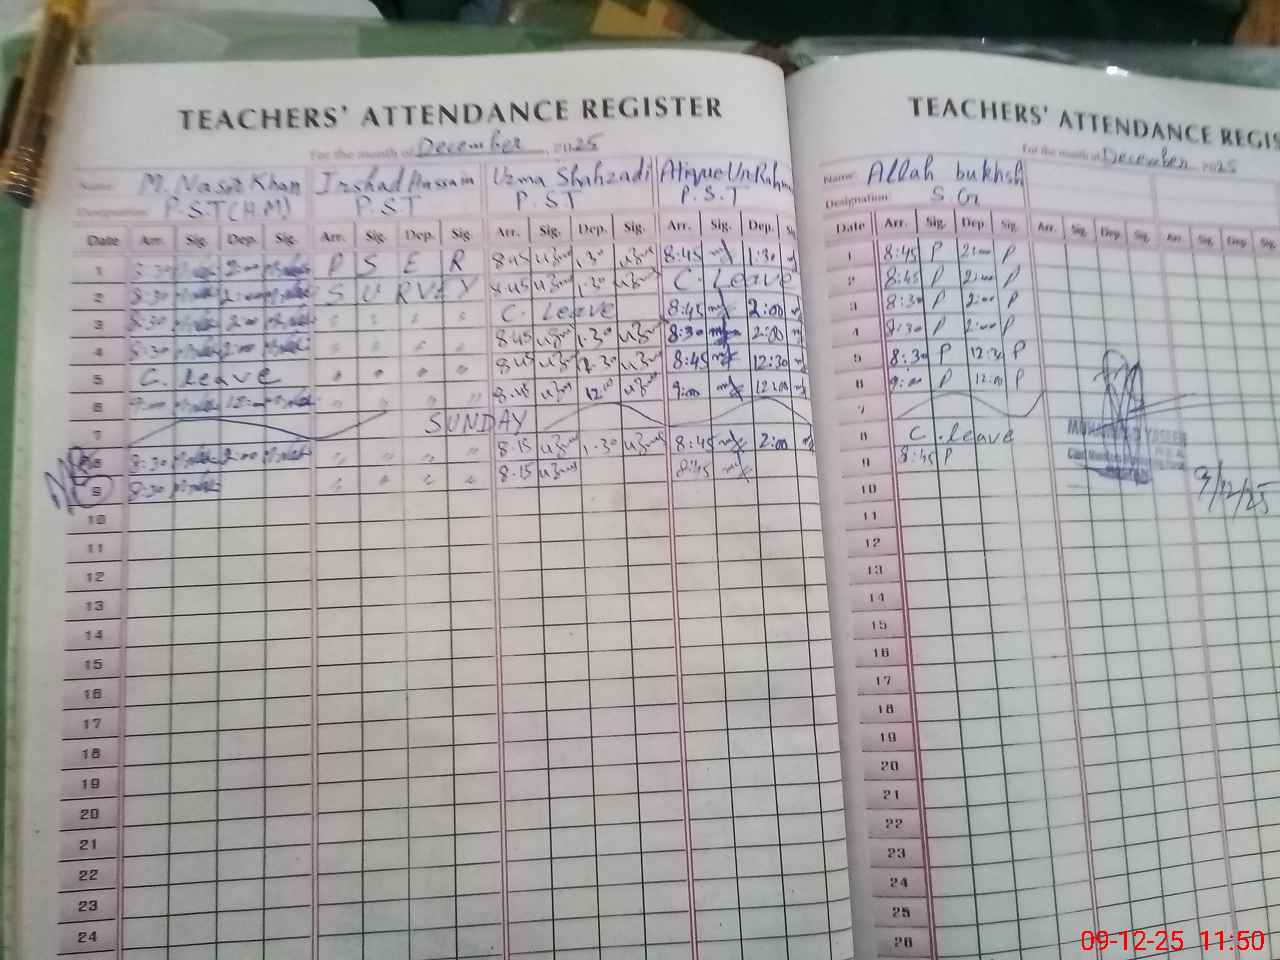 TEACHERS' ATTENDANCE REGISTER
For the month of December, 2025
Name: M. Nasir Khan Irshad Hussain Uzma Shahzadi Atique Ur Rahm
Designation: P.S.T (H.M) P.S.T P.S.T P.S.T
Date Arr. Sig. Dep. Sig. Arr. Sig. Dep. Sig. Arr. Sig. Dep. Sig. Arr. Sig. Dep. Sig
1 8:30 2:00 P S E R 8:45 1:30 8:45 1:30
2 8:30 2:00 S U R V E Y 8:45 1:30 C. Leave
3 8:30 2:00 " " " " C. Leave 8:45 2:00
4 8:30 2:00 " " " " 8:45 1:30 8:30 2:00
5 C. leave " " " " 8:45 12:30 8:45 12:30
6 9:00 12:00 " " " " 8:45 12:00 9:00 12:00
7 SUNDAY
8 8:30 2:00 " " " " 8:15 1:30 8:45 2:00
9 8:30 " " " " 8:15 8:45
10
11
12
13
14
15
16
17
18
19
20
21
22
23
24
TEACHERS' ATTENDANCE REGIS
For the month of December 2025
Name: Allah bukhsh
Designation: S.G
Date Arr. Sig. Dep Sig. Arr. Sig. Dep. Sig. Arr. Sig. Dep Sig.
1 8:45 P 2:00 P
2 8:45 P 2:00 P
3 8:30 P 2:00 P
4 8:30 P 2:00 P
5 8:30 P 12:30 P
6 9:00 P 12:00 P
7
8 C. leave
9 8:45 P
10
11
12
13
14
15
16
17
18
19
20
21
22
23
24
25
26
9/12/25
09-12-25 11:50